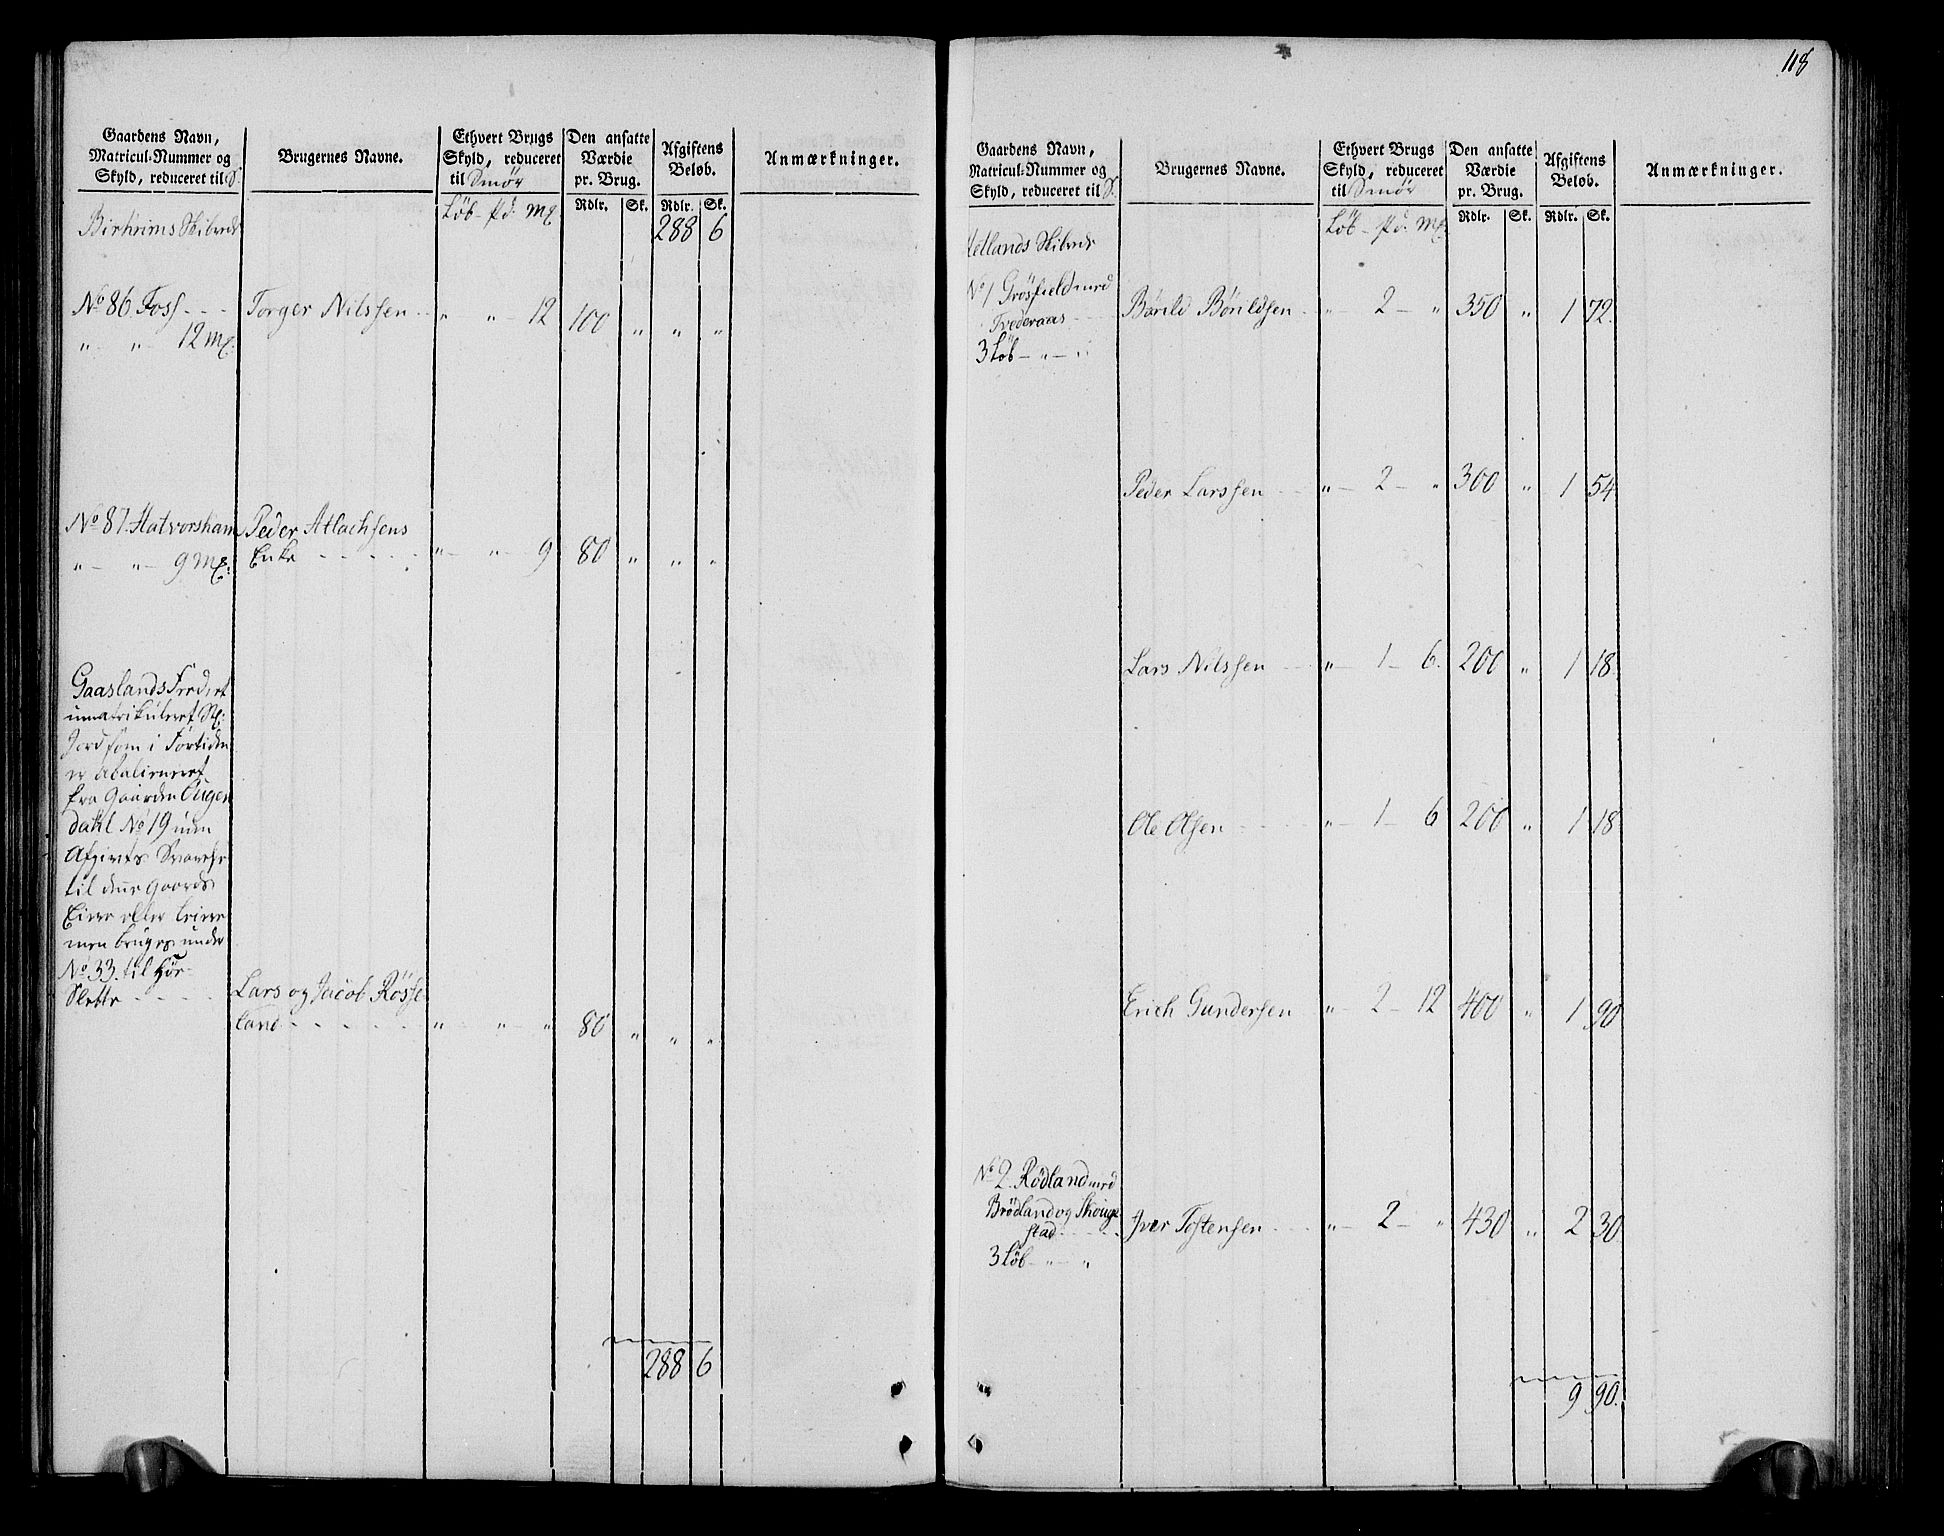 118
Gaardens Navn,
Matricul-Nummer og
Skyld, reduceret til S.
Brugernes Navne.
Ethvert Brugs
Skyld, reduceret
til Smør
Den ansatte
Værdie
pr. Brug.
Afgiftens
Beløb.
Anmærkninger.
Løb - pd: Mk
Rdlr. Sk. Rdlr. Sk.
288 6
No 86 Foss - - - Torger Nilssen - - " " - 12 100 " " "
" " - 12 Mk:
No 87 Hatvorsham Peder Atlachsens
" - " - 9 Mk: Enke - - - - - " - " - 9 80 " " "
Gaaslands
Jord som i Fortiden
er
fra Gaarden Eigen
dahl No 19
til
Eiere eller
men bruges under
No 33. til Hør-
Slette - - - -
Lars og Jacob Røsse
land - - - - - - " " " 80 " " "
288 6
Gaardens Navn,
Matricul-Nummer og
Skyld, reduceret til S.
Brugernes Navne.
Ethvert Brugs
Skyld, reduceret
til Smør
Den ansatte
Værdie
pr. Brug.
Afgiftens
Beløb.
Anmærkninger.
Løb - pd: Mk
Rdlr. Sk. Rdlr. Sk.
Hetlands
No 1 Grøsfield med Børild Børildsen - " - 2 - " 350 " 1 72.
Tvederaas - -
3 Løb - " - "
Peder Larssen - - " - 2 - " 300 " 1 54
Lars Nilssen - - " - 1 - 6. 200 " 1 18.
Ole Olsen - - - - " - 1 - 6 200 " 1 18
Erich Gundersen - " - 2 - 12 400 " 1 90
No 2. Rødland med
Brødland og Skouge
stad - - - Iver Tostensen - - - " - 2 - " 430 " 2 30
3 Løb - " - "
9 90.